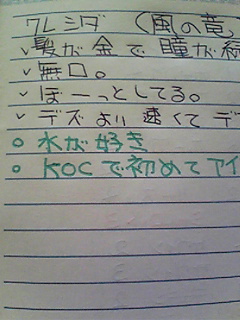 クレシダ (風の竜)
✓髪が金で瞳が
✓無口。
✓ぼーっとしてる。
✓デズより速くてデ
○水が好き
○KOCで初めてアイ